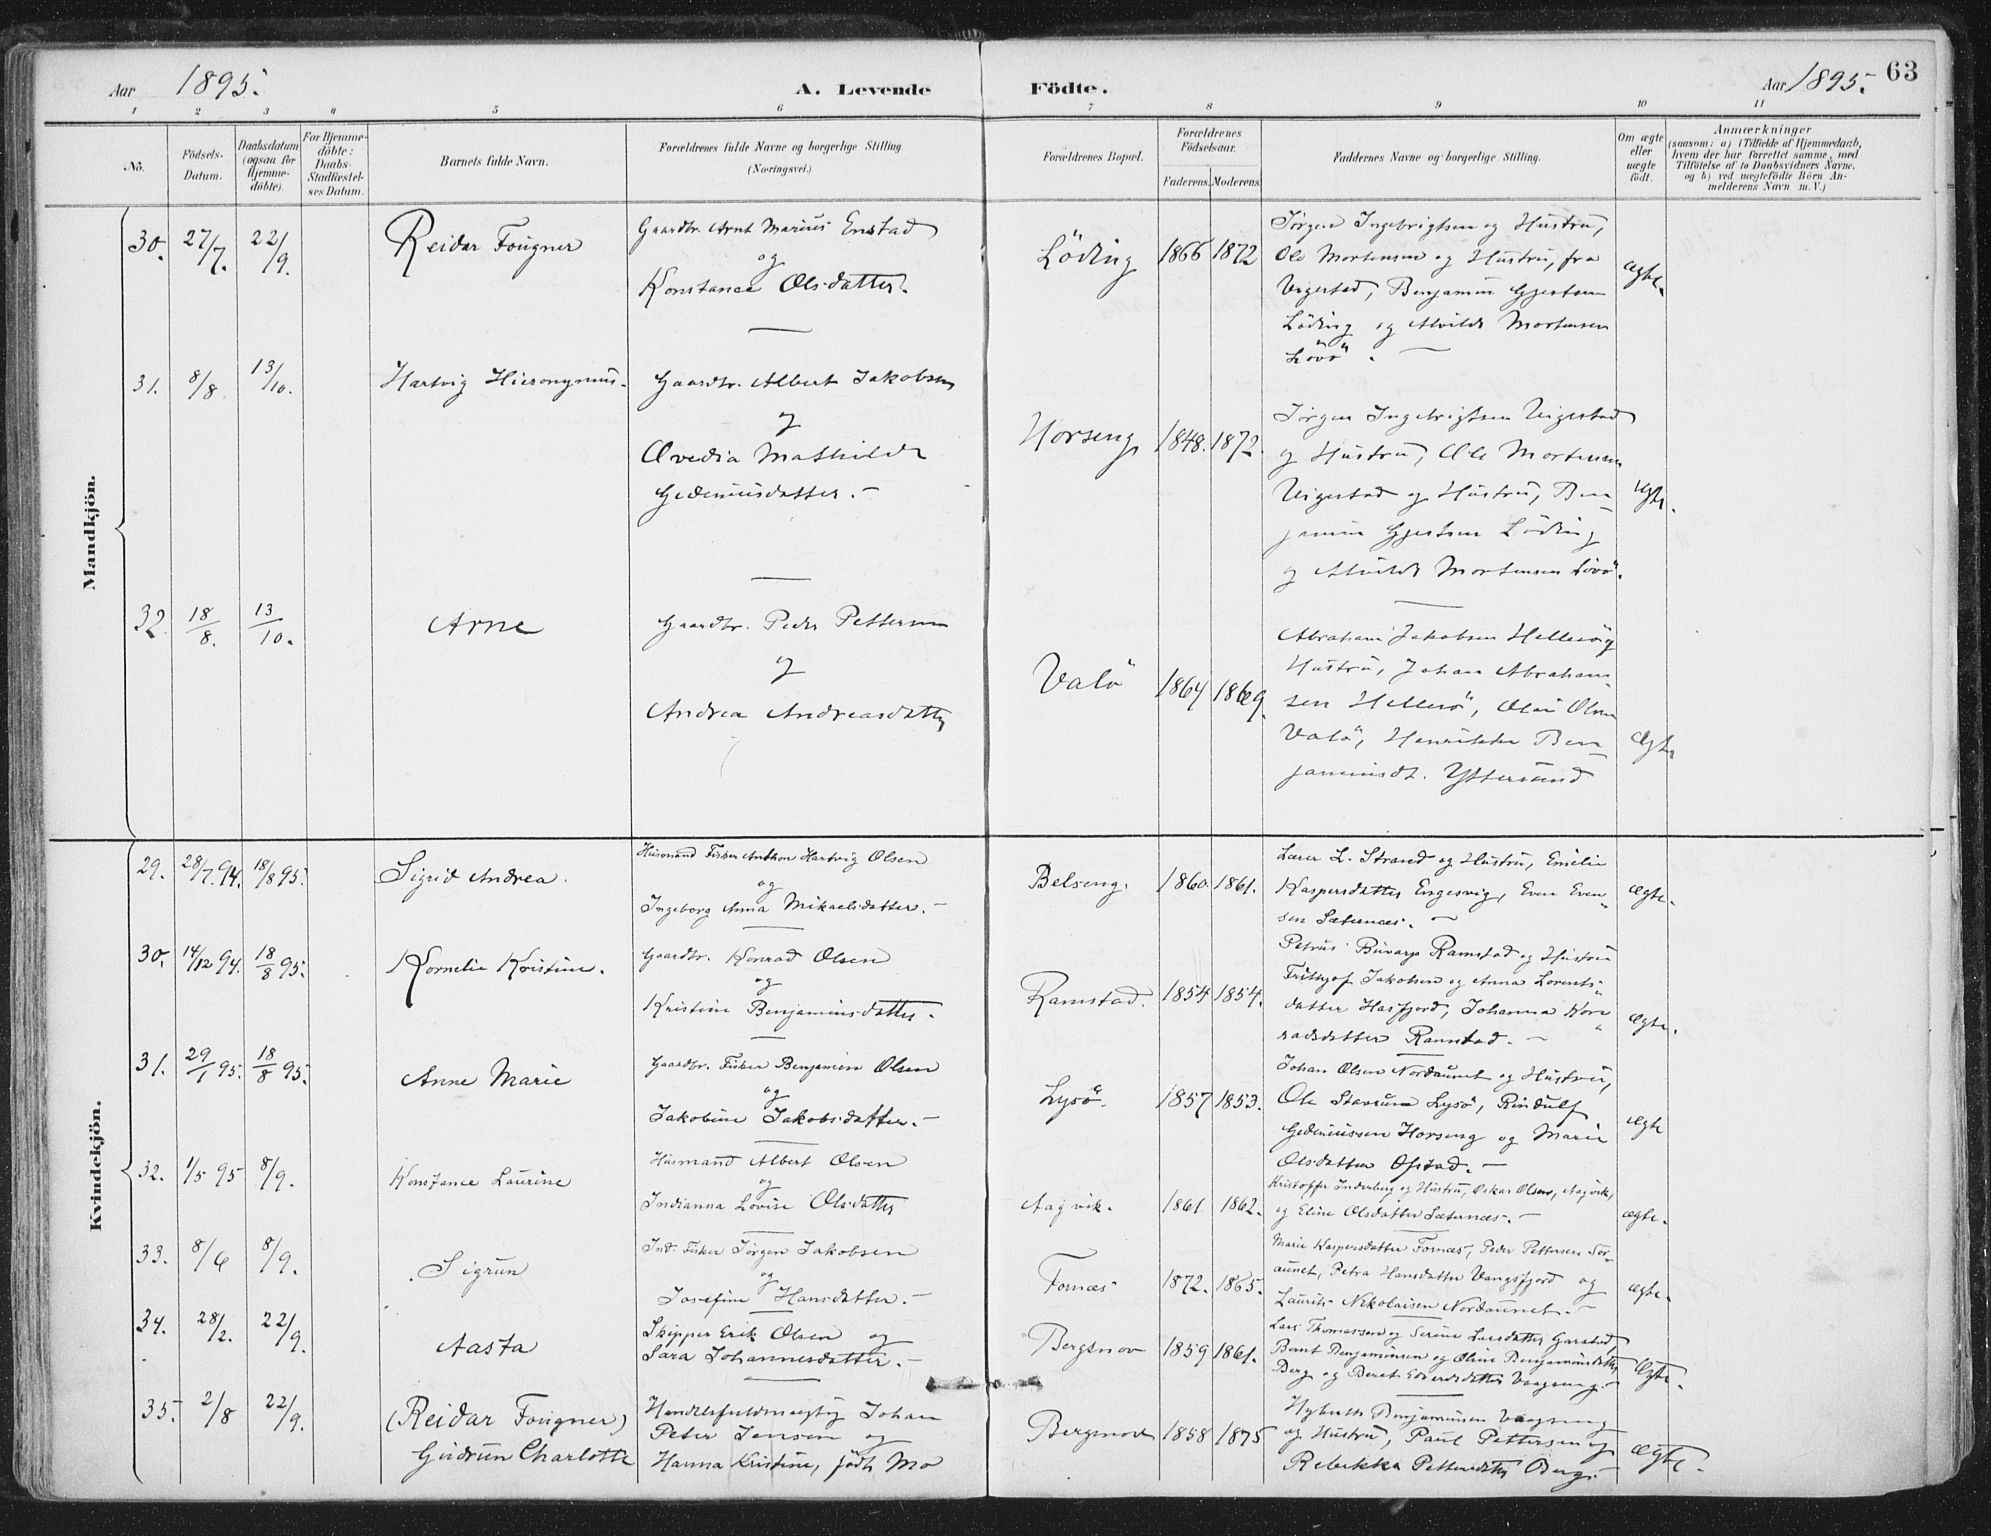 Aar 1895. A. Levende Födte. Aar 1895. 63
1 2 3 4 5 6 7 8 9 10 11
No. Födsels-Datum. Daabsdatum (ogsaa for Hjemmedöbte). For Hjemmedöbte: Daabs-Stadfæstelses Datum. Barnets fulde Navn. Forældrenes fulde Navne og borgerlige Stilling. (Næringsvei.) Forældrenes Bopæl. Forældrenes Födselsaar. Faderens. Moderens. Faddernes Navne og borgerlige Stilling. Om ægte eller uægte födt. Anmærkninger (saasom: a) i Tilfælde af Hjemmedaab, hvem der har forrettet samme, med Tilföielse af to Daabsvidners Navne. og b) ved uægtefödte Börn Anmelderens Navn m. V.)
Mandkjön.
30. 27/7. 22/9. Reidar Fougner
Gaardbr. Arnt Marius Enstad
og
Konstance Olsdatter.
Löding 1866 1872
Jörgen Ingebrigtsen og Hustru,
Ole Mortensen og Hustru, fra
Vigestad, Benjamin Gjertsen
Löding og Alvilde Mortensen
Lövö. —
ægte.
31. 8/8. 13/10. Hartvig Hieronymus.
Gaardbr. Albert Jakobsen
og
Ovedia Mathilde
Gedeniusdatter. —
Horseng 1848. 1872.
Jörgen Ingebrigtsen Vigestad
og Hustru, Ole Mortensen
Vigestad og Hustru, Ben-
jamin Gjertsen Löding
og Alvilde Mortensen Lövö.
ægte.
32. 18/8. 13/10. Arne
Gaardbr. Peder Pettersen
og
Andrea Andreasdatter
Valö 1864 1869.
Abraham Jakobsen Hellesö og
Hustru, Johan Abraham-
sen Hellesö, Olai Olsen
Valö, Henrikke Ben-
jaminsdt. Yttersund
Ægte
Kvindekjön.
29. 28/7.94. 18/8 95. Sigrid Andrea.
Husmand Fisker Anthon Hartvig Olsen
og
Ingeborg Anna Mikaelsdatter. —
Belseng. 1860. 1861.
Lærer L. Strand og Hustru, Emelie
Kaspersdatter Engesvig, Even Even-
sen Sæternæs. —
Ægte.
30. 14/12 94. 18/8 95. Kornelie Kristine.
Gaardbr. Konrad Olsen
og
Kristine Benjaminsdatter.
Ramstad. 1854 1854.
Petrus Buvarp Ramstad og Hustru
Frithjof Jakobsen og Anna Lorents-
datter Hasfjord, Johanna Kon-
radsdatter Ramstad. —
Ægte.
31. 29/1 95. 18/8 95. Anne Marie
Gaardbr. Fisker Benjamin Olsen
og
Jakobine Jakobsdatter. —
Lysö. 1857 1853.
Johan Olsen Nordaunet og Hustru,
Ole Lysö, Rindulf
Gedeniussen Horseng og Marie
Olsdatter Ofstad. —
Ægte
32. 1/5 95 8/9. Konstance Laurine
Husmand Albert Olsen
og
Indianna Lovise Olsdatter
Aagvik. 1861 1862.
Kristoffer Inderberg og Hustru, Oskar Olsen, Aagvik,
og Eline Olsdatter Sæternæs. —
ægte.
33. 8/6 8/9. Sigrun
Ind. Fisker Jörgen Jakobsen
og
Josefine Hansdatter. —
Fornæs 1872. 1865.
Marie Kaspersdatter Fornæs, Peder Pettersen Sör-
aunet, Petra Hansdatter Vangsfjord og
Laurits Nikolaisen Nordaunet. —
Ægte.
34. 28/2. 22/9. Aasta
Skipper Erik Olsen og
Sara Johannesdatter. —
Bergsnov 1859 1861.
Lars Thomassen og Serine Larsdatter Garstad,
Bernt Benjaminsen og Oline Benjaminsdatter
Berg og Beret Edvardsdatter Vaagseng. —
Ægte.
35. 2/8 22/9. (Reidar Fougner)
Gudrun Charlotte
Handelsfuldmægtig Johan
Peter Jensen og
Hanna Kristine, födt Mo
Bergsnov 1858 1875
Benjaminsen Vaagseng
og Hustru, Paul Pettersen og
Rebekka Pettersdatter Berg.
Ægte.